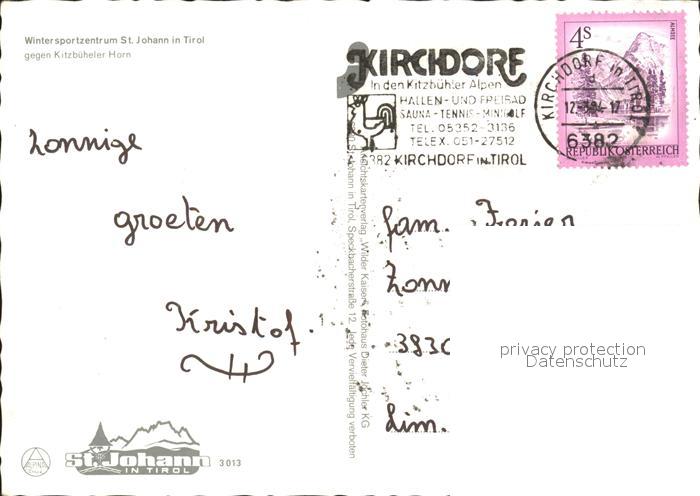 Wintersportzentrum St. Johann in Tirol
gegen Kitzbüheler Horn
KIRCHDORF
In den Kitzbühler Alpen
HALLEN- UND FREIBAD
SAUNA - TENNIS - MINIGOLF
TEL. 05352-3136
TELEX. 051-27512
6382 KIRCHDORF IN TIROL
4S
ALMSEE
REPUBLIK ÖSTERREICH
KIRCHDORF in TIROL
6382
zonnige
groeten
Kristof.
fam.
Zonn
393
Lim.
privacy protection
Datenschutz
Ansichtskartenverlag „Wilder Kaiser", Fotohaus Dieter Jöchler KG
St. Johann in Tirol, Speckbacherstraße 12. Jede Vervielfältigung verboten
ALPINA
St. Johann
IN TIROL
3013